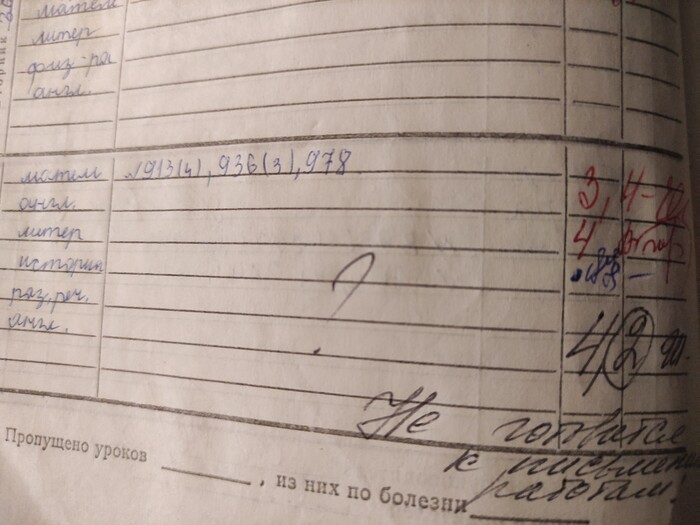 матем
литер
физ-ра
англ.
матем №913(4), 936(3), 978 3, 4-
англ.
литер 4
история
раз. реч. ?
англ. 4, 2
Не готовится
к письменным
работам!
Пропущено уроков , из них по болезни